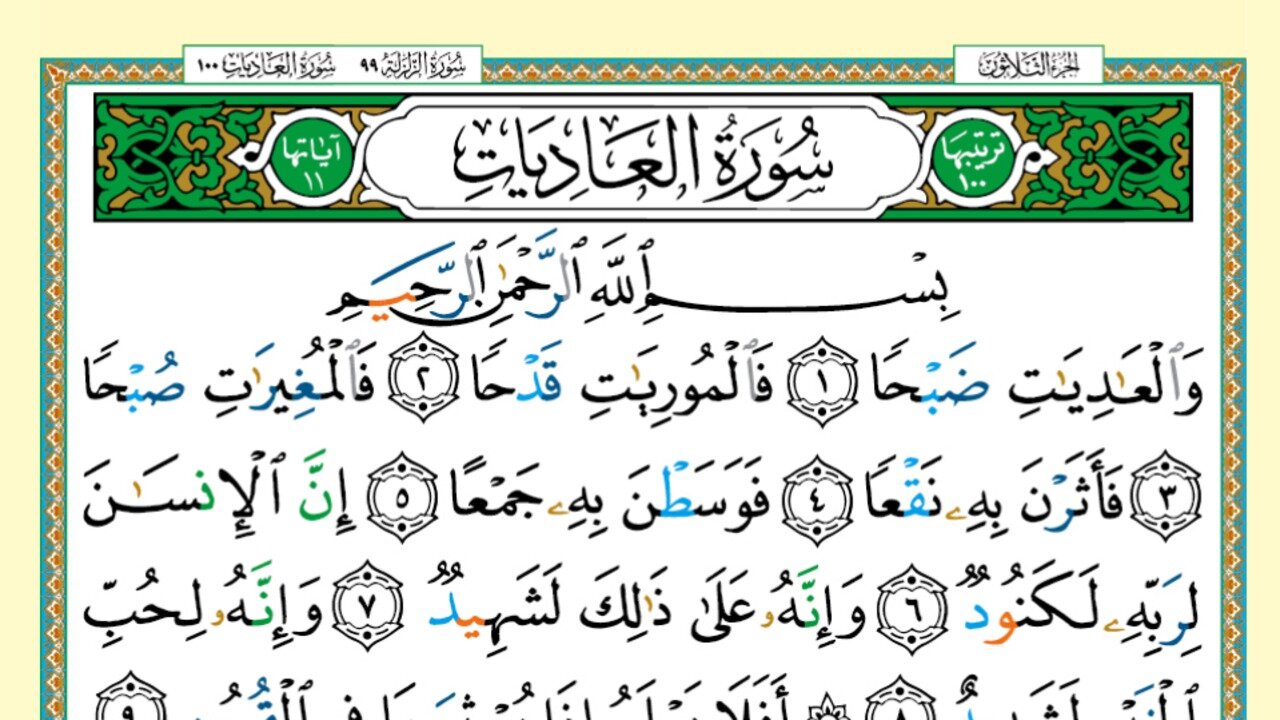 الجزء الثلاثون
سورة الزلزلة ٩٩ سورة العاديات ١٠٠
ترتيبها ١٠٠
سُورَةُ الْعَادِيَاتِ
آياتها ١١
بِسْمِ ٱللَّهِ ٱلرَّحْمَٰنِ ٱلرَّحِيمِ
وَٱلْعَٰدِيَٰتِ ضَبْحًا ١ فَٱلْمُورِيَٰتِ قَدْحًا ٢ فَٱلْمُغِيرَٰتِ صُبْحًا
٣ فَأَثَرْنَ بِهِۦ نَقْعًا ٤ فَوَسَطْنَ بِهِۦ جَمْعًا ٥ إِنَّ ٱلْإِنسَٰنَ
لِرَبِّهِۦ لَكَنُودٌ ٦ وَإِنَّهُۥ عَلَىٰ ذَٰلِكَ لَشَهِيدٌ ٧ وَإِنَّهُۥ لِحُبِّ